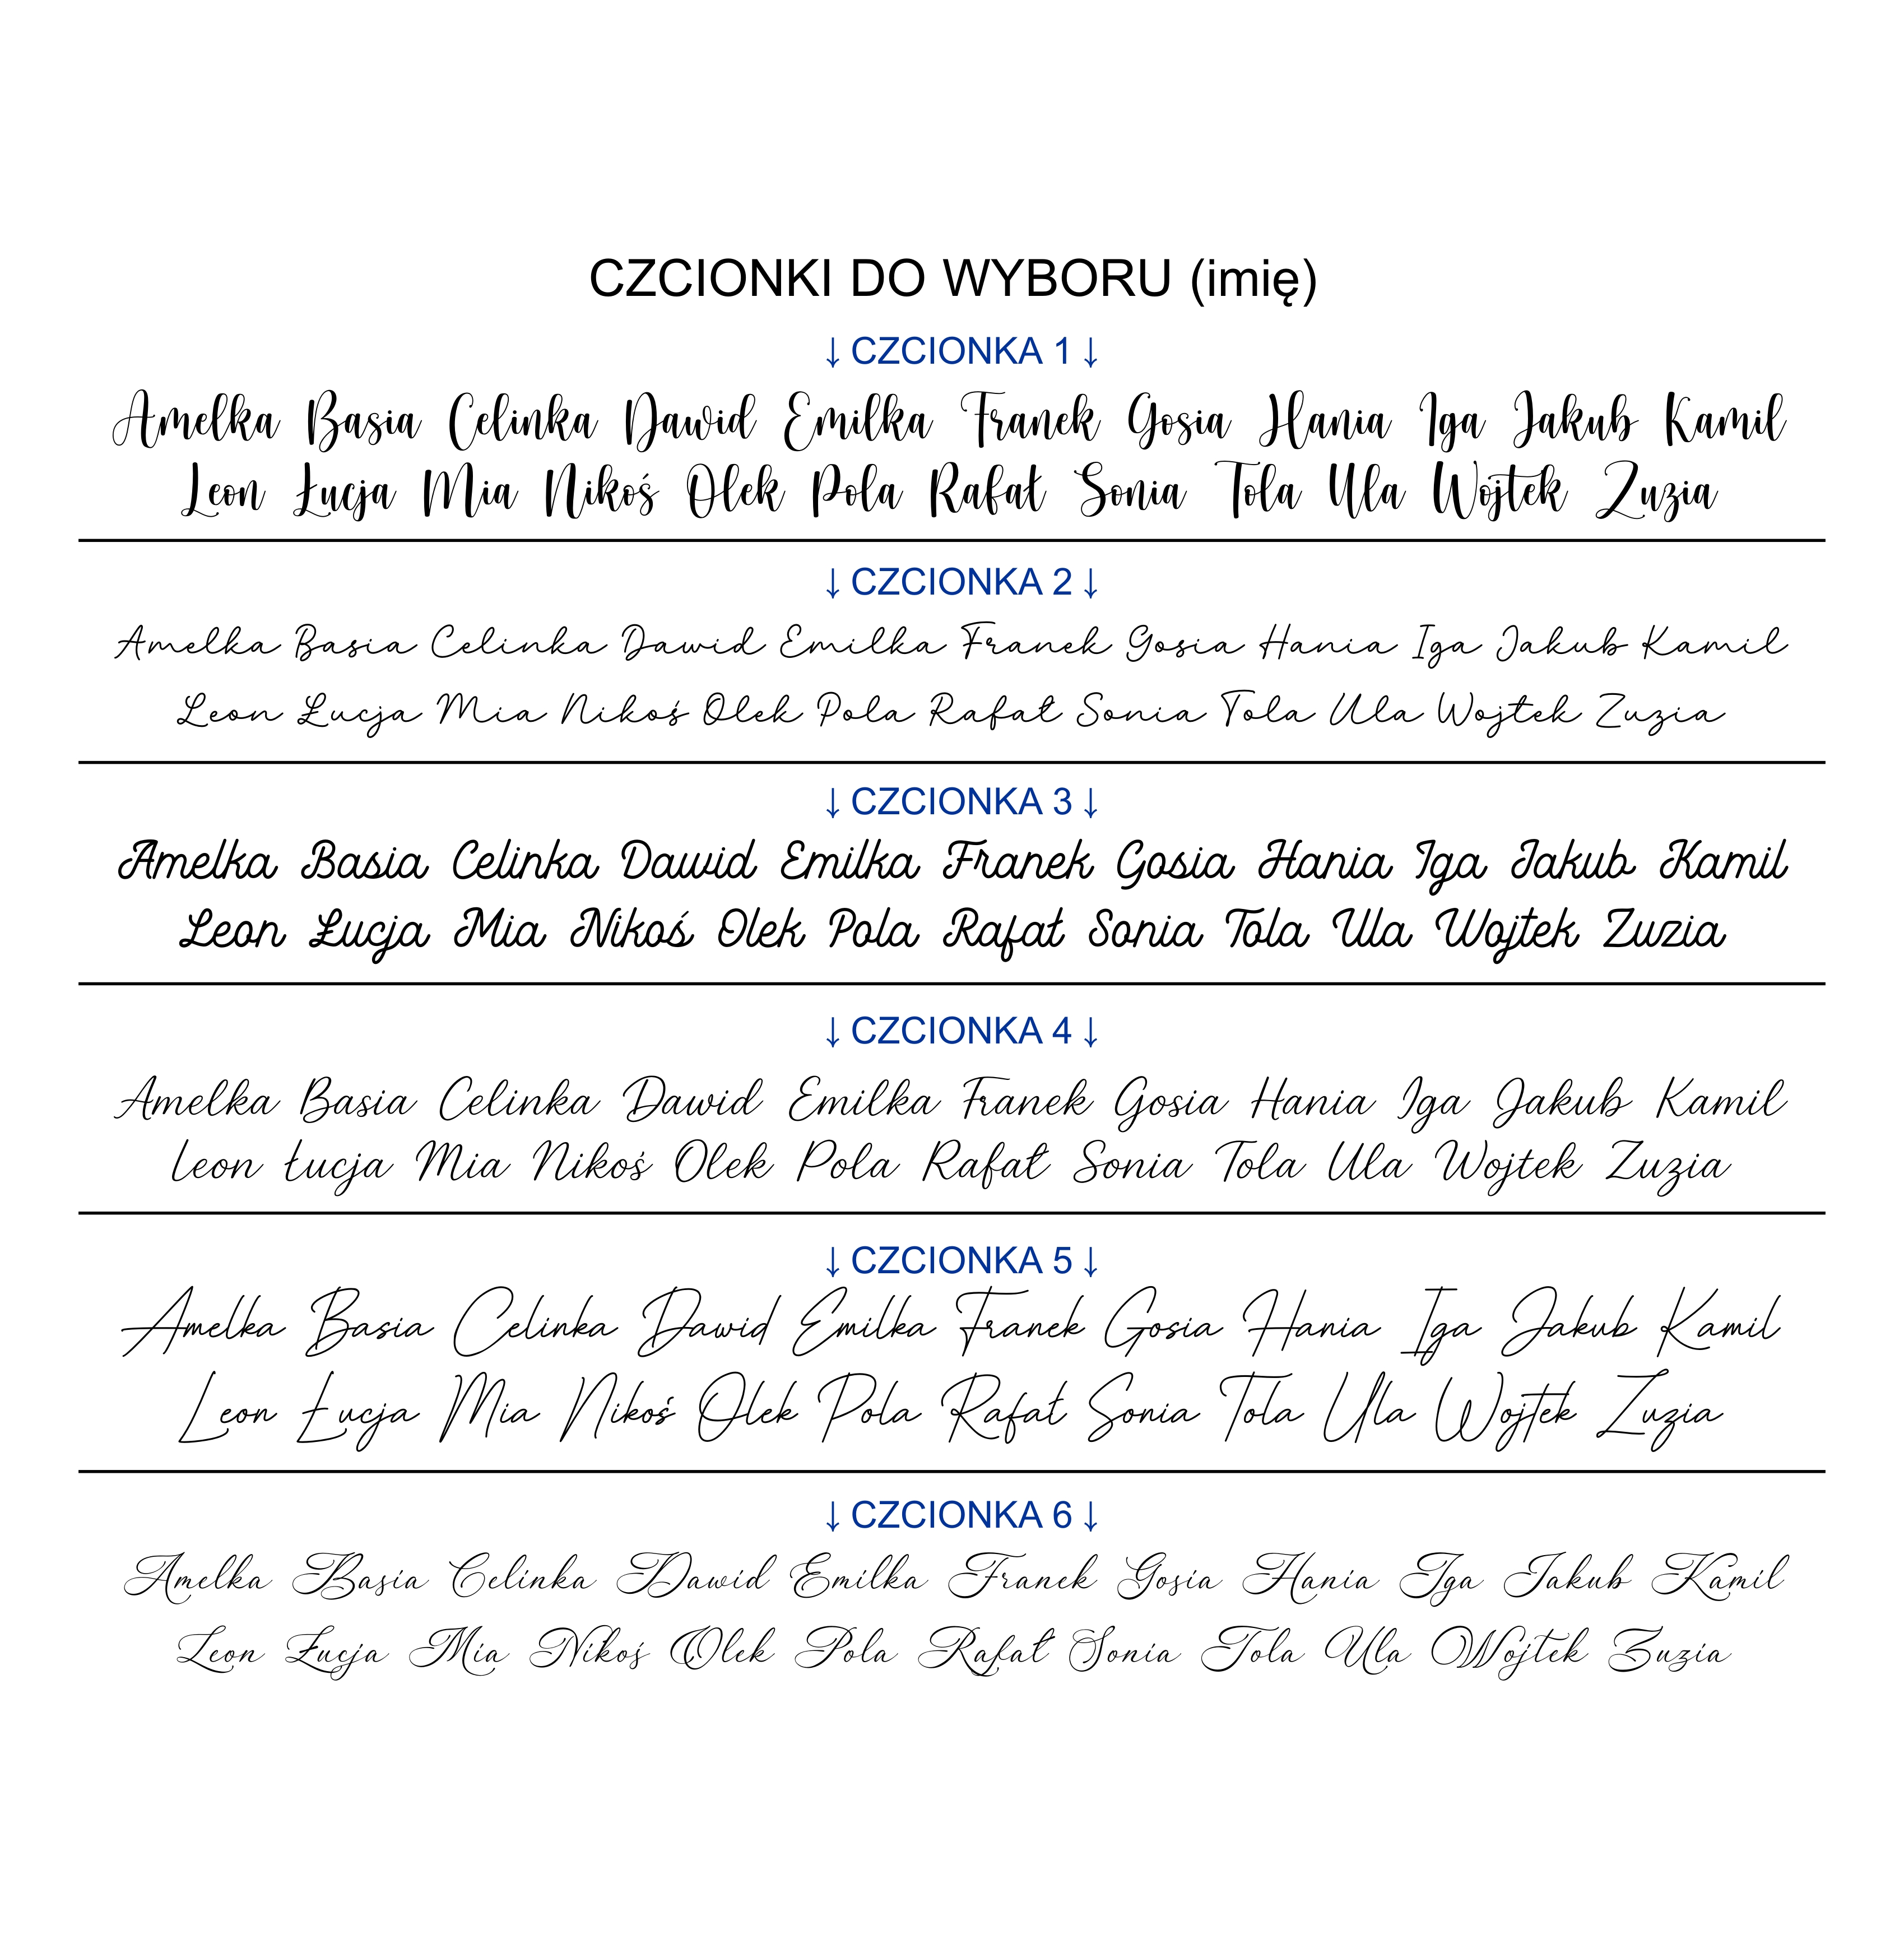 CZCIONKI DO WYBORU (imię)
↓ CZCIONKA 1 ↓
Amelka Basia Celinka Dawid Emilka Franek Gosia Hania Iga Jakub Kamil
Leon Łucja Mia Nikoś Olek Pola Rafał Sonia Tola Ula Wojtek Zuzia
↓ CZCIONKA 2 ↓
Amelka Basia Celinka Dawid Emilka Franek Gosia Hania Iga Jakub Kamil
Leon Łucja Mia Nikoś Olek Pola Rafał Sonia Tola Ula Wojtek Zuzia
↓ CZCIONKA 3 ↓
Amelka Basia Celinka Dawid Emilka Franek Gosia Hania Iga Jakub Kamil
Leon Łucja Mia Nikoś Olek Pola Rafał Sonia Tola Ula Wojtek Zuzia
↓ CZCIONKA 4 ↓
Amelka Basia Celinka Dawid Emilka Franek Gosia Hania Iga Jakub Kamil
Leon Łucja Mia Nikoś Olek Pola Rafał Sonia Tola Ula Wojtek Zuzia
↓ CZCIONKA 5 ↓
Amelka Basia Celinka Dawid Emilka Franek Gosia Hania Iga Jakub Kamil
Leon Łucja Mia Nikoś Olek Pola Rafał Sonia Tola Ula Wojtek Zuzia
↓ CZCIONKA 6 ↓
Amelka Basia Celinka Dawid Emilka Franek Gosia Hania Iga Jakub Kamil
Leon Łucja Mia Nikoś Olek Pola Rafał Sonia Tola Ula Wojtek Zuzia